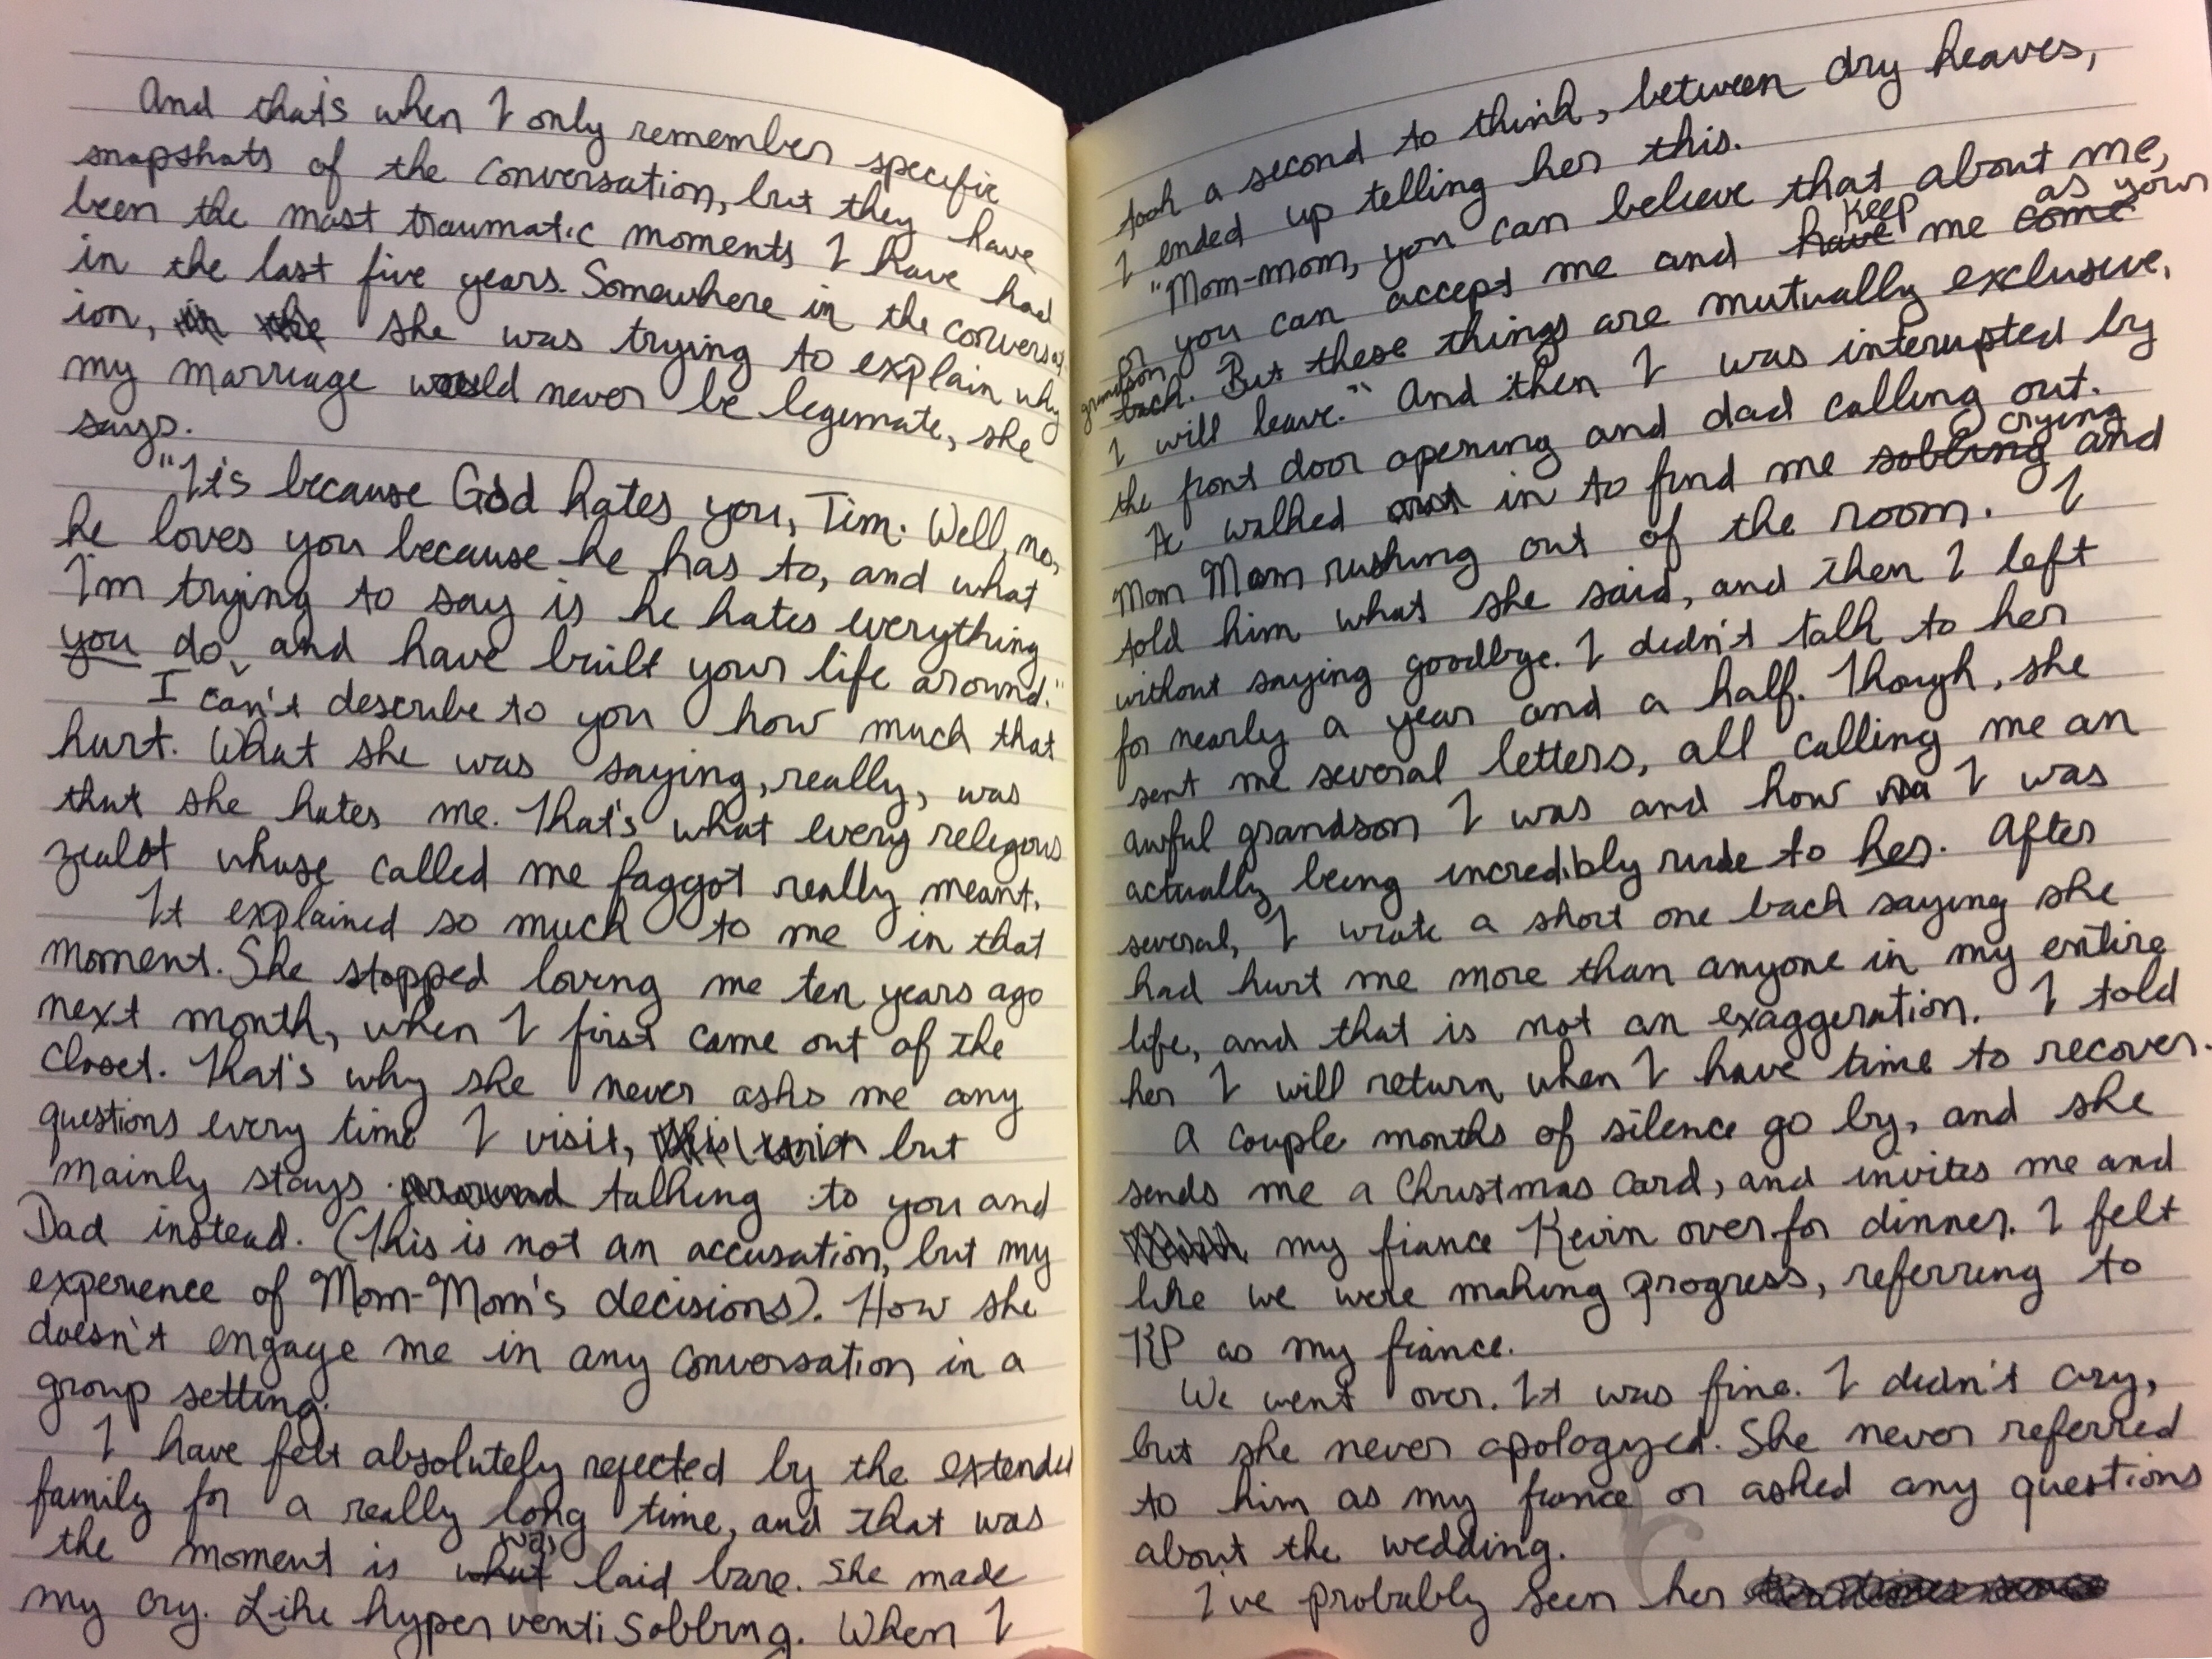 And that's when I only remember specific
snapshots of the conversation, but they have
been the most traumatic moments I have had
in the last five years. Somewhere in the conversat-
ion, in the she was trying to explain why
my marriage would never be legimate, she
says.
"It's because God hates you, Tim. Well, no,
he loves you because he has to, and what
I'm trying to say is he hates everything
you do, and have built your life around."
I can't describe to you how much that
hurt. What she was saying, really, was
that she hates me. That's what every relegous
zealot whose called me faggot really meant.
It explained so much to me in that
moment. She stopped loving me ten years ago
next month, when I first came out of the
closet. That's why she never asks me any
questions every time I visit, this visit but
mainly stays around talking to you and
Dad instead. (This is not an accusation, but my
experience of Mom-Mom's decisions). How she
doesn't engage me in any conversation in a
group setting.
I have felt absolutely rejected by the extended
family for a really long time, and that was
was
the moment is what laid bare. She made
my cry. Like hyperventi sobbing. When I
took a second to think, between dry heaves,
I ended up telling her this.
"Mom-mom, you can believe that about me,
keep as your
or you can accept me and have me come
grandson
back. But these things are mutually exclusive.
I will leave." And then I was interupted by
the front door opening and dad calling out.
crying
He walked out in to find me sobbing and
Mom Mom rushing out of the room. I
told him what she said, and then I left
without saying goodbye. I didn't talk to her
for nearly a year and a half. Though, she
sent me several letters, all calling me an
awful grandson I was and how I was
actually being incredibly rude to her. After
several, I wrote a short one back saying she
had hurt me more than anyone in my entire
life, and that is not an exaggeration. I told
her I will return when I have time to recover.
A couple months of silence go by, and she
sends me a Christmas card, and invites me and
my fiance Kevin over for dinner. I felt
like we were making progress, referring to
KP as my fiance.
We went over. It was fine. I didn't cry,
but she never apologized. She never referred
to him as my fiance or asked any questions
about the wedding.
I've probably seen her